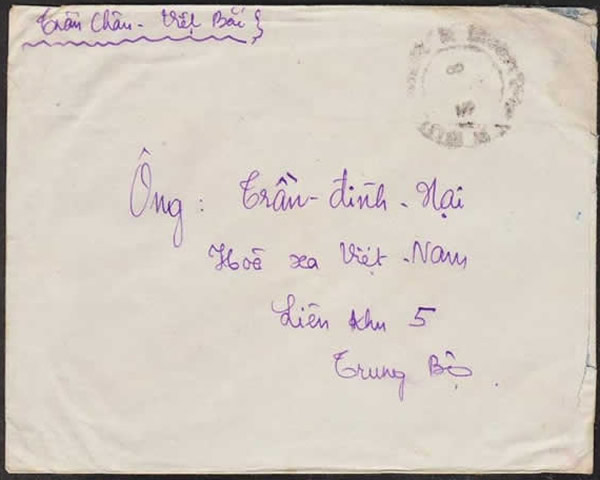 Trần Chân - Việt Bắc
Ông : Trần - đình - Nại
Hoả xa Việt - Nam
Liên khu 5
Trung Bộ